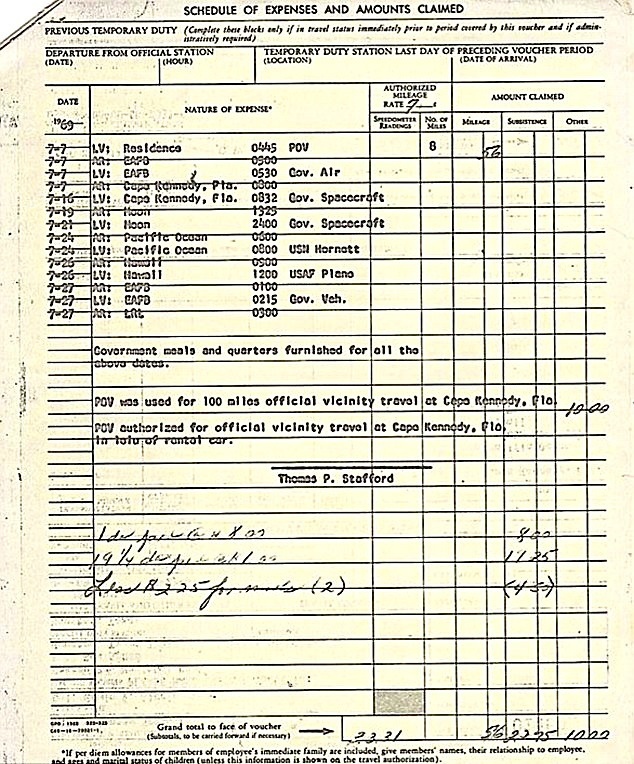 SCHEDULE OF EXPENSES AND AMOUNTS CLAIMED
PREVIOUS TEMPORARY DUTY (Complete these blocks only if in travel status immediately prior to period covered by this voucher and if admin-
istratively required)
DEPARTURE FROM OFFICIAL STATION TEMPORARY DUTY STATION LAST DAY OF PRECEDING VOUCHER PERIOD
(DATE) (HOUR) (LOCATION) (DATE OF ARRIVAL)
DATE NATURE OF EXPENSE* AUTHORIZED MILEAGE RATE 7 ¢ AMOUNT CLAIMED
1969 SPEEDOMETER READINGS NO. OF MILES MILEAGE SUBSISTENCE OTHER
7-7 LV: Residence 0445 POV 8 56
7-7 AR: EAFB 0500
7-7 LV: EAFB 0530 Gov. Air
7-7 AR: Cape Kennedy, Fla. 0800
7-16 LV: Cape Kennedy, Fla. 0832 Gov. Spacecraft
7-19 AR: Moon 1325
7-21 LV: Moon 2400 Gov. Spacecraft
7-24 AR: Pacific Ocean 0600
7-24 LV: Pacific Ocean 0800 USN Hornett
7-26 AR: Hawaii 0900
7-26 LV: Hawaii 1200 USAF Plane
7-27 AR: EAFB 0100
7-27 LV: EAFB 0215 Gov. Veh.
7-27 AR: LRL 0300
Government meals and quarters furnished for all the
above dates.
POV was used for 100 miles official vicinity travel at Cape Kennedy, Fla. 10.00
POV authorized for official vicinity travel at Cape Kennedy, Fla.
in leiu of rental car.
Thomas P. Stafford
1 day 8.00
19 1/4
Less 2.25 for (2)
Grand total to face of voucher 33.31 56 10.00
(Subtotals, to be carried forward if necessary)
*If per diem allowances for members of employee's immediate family are included, give members' names, their relationship to employee,
and ages and marital status of children (unless this information is shown on the travel authorization).